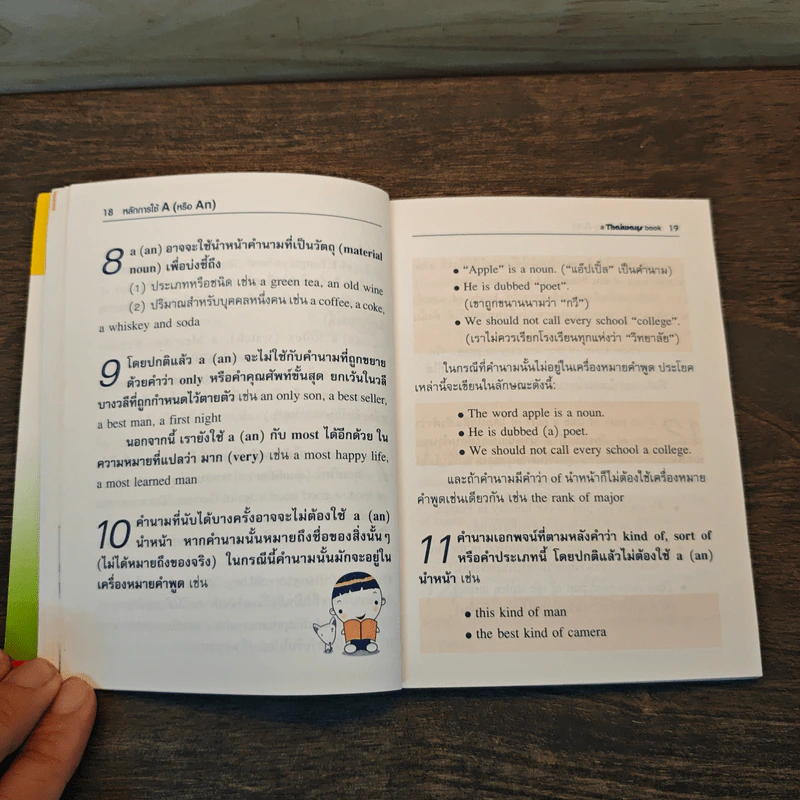 18 หลักการใช้ A (หรือ An)
8 a (an) อาจจะใช้นำหน้าคำนามที่เป็นวัตถุ (material
noun) เพื่อบ่งชี้ถึง
(1) ประเภทหรือชนิด เช่น a green tea, an old wine
(2) ปริมาณสำหรับบุคคลหนึ่งคน เช่น a coffee, a coke,
a whiskey and soda
9 โดยปกติแล้ว a (an) จะไม่ใช้กับคำนามที่ถูกขยาย
ด้วยคำว่า only หรือคำคุณศัพท์ขั้นสุด ยกเว้นในวลี
บางวลีที่ถูกกำหนดไว้ตายตัว เช่น an only son, a best seller,
a best man, a first night
นอกจากนี้ เรายังใช้ a (an) กับ most ได้อีกด้วย ใน
ความหมายที่แปลว่า มาก (very) เช่น a most happy life,
a most learned man
10 คำนามที่นับได้บางครั้งอาจจะไม่ต้องใช้ a (an)
นำหน้า หากคำนามนั้นหมายถึงชื่อของสิ่งนั้นๆ
(ไม่ได้หมายถึงของจริง) ในกรณีนี้คำนามนั้นมักจะอยู่ใน
เครื่องหมายคำพูด เช่น
a Thaiway book 19
• “Apple” is a noun. (“แอ๊ปเปิ้ล” เป็นคำนาม)
• He is dubbed “poet”.
(เขาถูกขนานนามว่า “กวี”)
• We should not call every school “college”.
(เราไม่ควรเรียกโรงเรียนทุกแห่งว่า “วิทยาลัย”)
ในกรณีที่คำนามนั้นไม่อยู่ในเครื่องหมายคำพูด ประโยค
เหล่านี้จะเขียนในลักษณะดังนี้:
• The word apple is a noun.
• He is dubbed (a) poet.
• We should not call every school a college.
และถ้าคำนามมีคำว่า of นำหน้าก็ไม่ต้องใช้เครื่องหมาย
คำพูดเช่นเดียวกัน เช่น the rank of major
11 คำนามเอกพจน์ที่ตามหลังคำว่า kind of, sort of
หรือคำประเภทนี้ โดยปกติแล้วไม่ต้องใช้ a (an)
นำหน้า เช่น
• this kind of man
• the best kind of camera